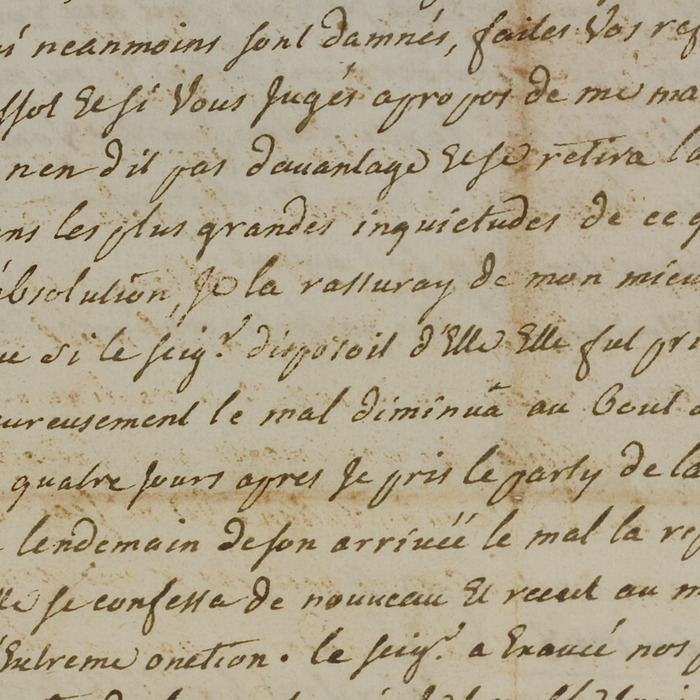 neanmoins sont damnés, faites Vos
Et si Vous Jugés apropos de me
n'en dit pas dauantage Et se retira
les plus grandes inquietudes de ce
absolution, Je la rassuray de mon mieu
si le seig.r disposoit d'Elle Elle fut
le mal diminuā au bout
quatre Jours apres Je pris le party de
lendemain de son arriuéé le mal la
se confessa de nouueau Et receut au
Extreme onction. le seig.r a Exaucé nos